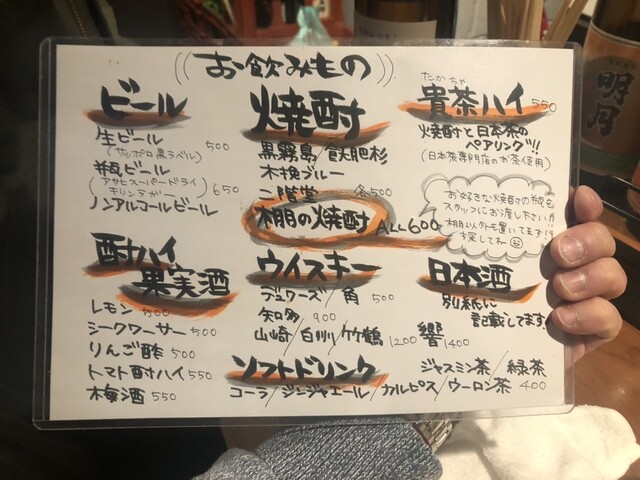 お飲みもの
ビール
生ビール 500
(サッポロ黒ラベル)
瓶ビール
(アサヒスーパードライ
キリンラガー) 650
ノンアルコールビール
焼酎
黒霧島/飫肥杉
木挽ブルー
二階堂 各500
棚の焼酎 ALL600
貴茶ハイ 550
たかちゃ
焼酎と日本茶の
ペアリング!!
(日本茶専門店のお茶使用)
お好きな焼酎の瓶を
スタッフにお渡し下さい!!
棚以外も置いてます!
探してね
酎ハイ
果実酒
レモン 500
シークワーサー 500
りんご酢 500
トマト酎ハイ 550
梅酒 550
ウイスキー
デュワーズ/角 500
知多 900
山崎/白州/竹鶴 1200 響 1400
日本酒
別紙に
記載してます!
ソフトドリンク
ジャスミン茶/緑茶
コーラ/ジンジャエール/カルピス/ウーロン茶 400
明月